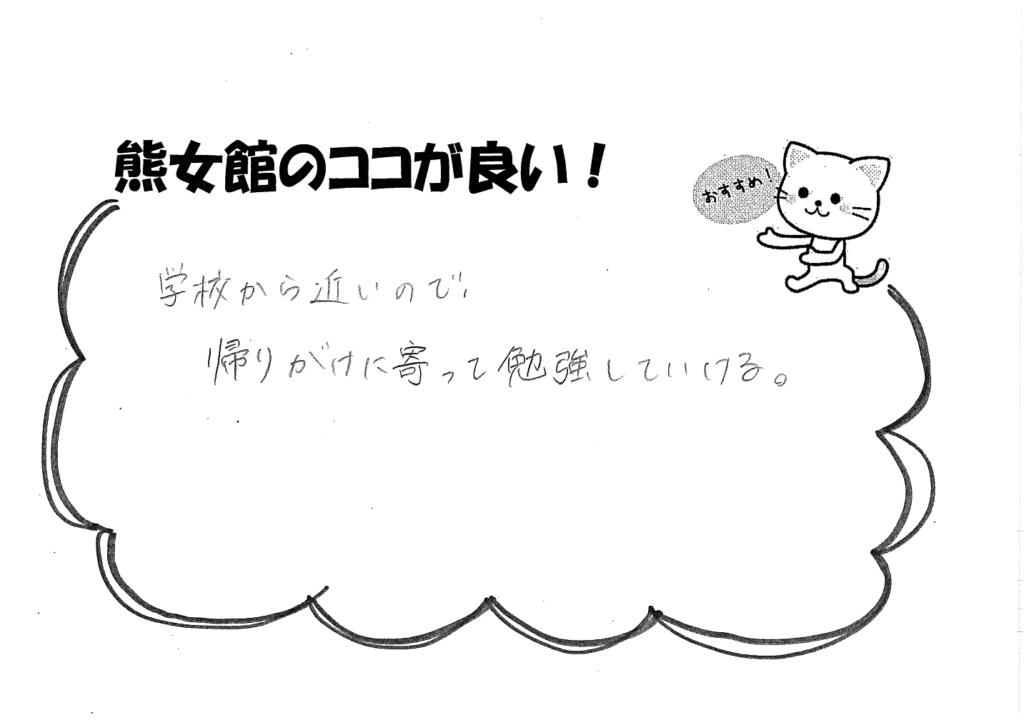 熊女館のココが良い！
おすすめ！
学校から近いので、
帰りがけに寄って勉強していける。